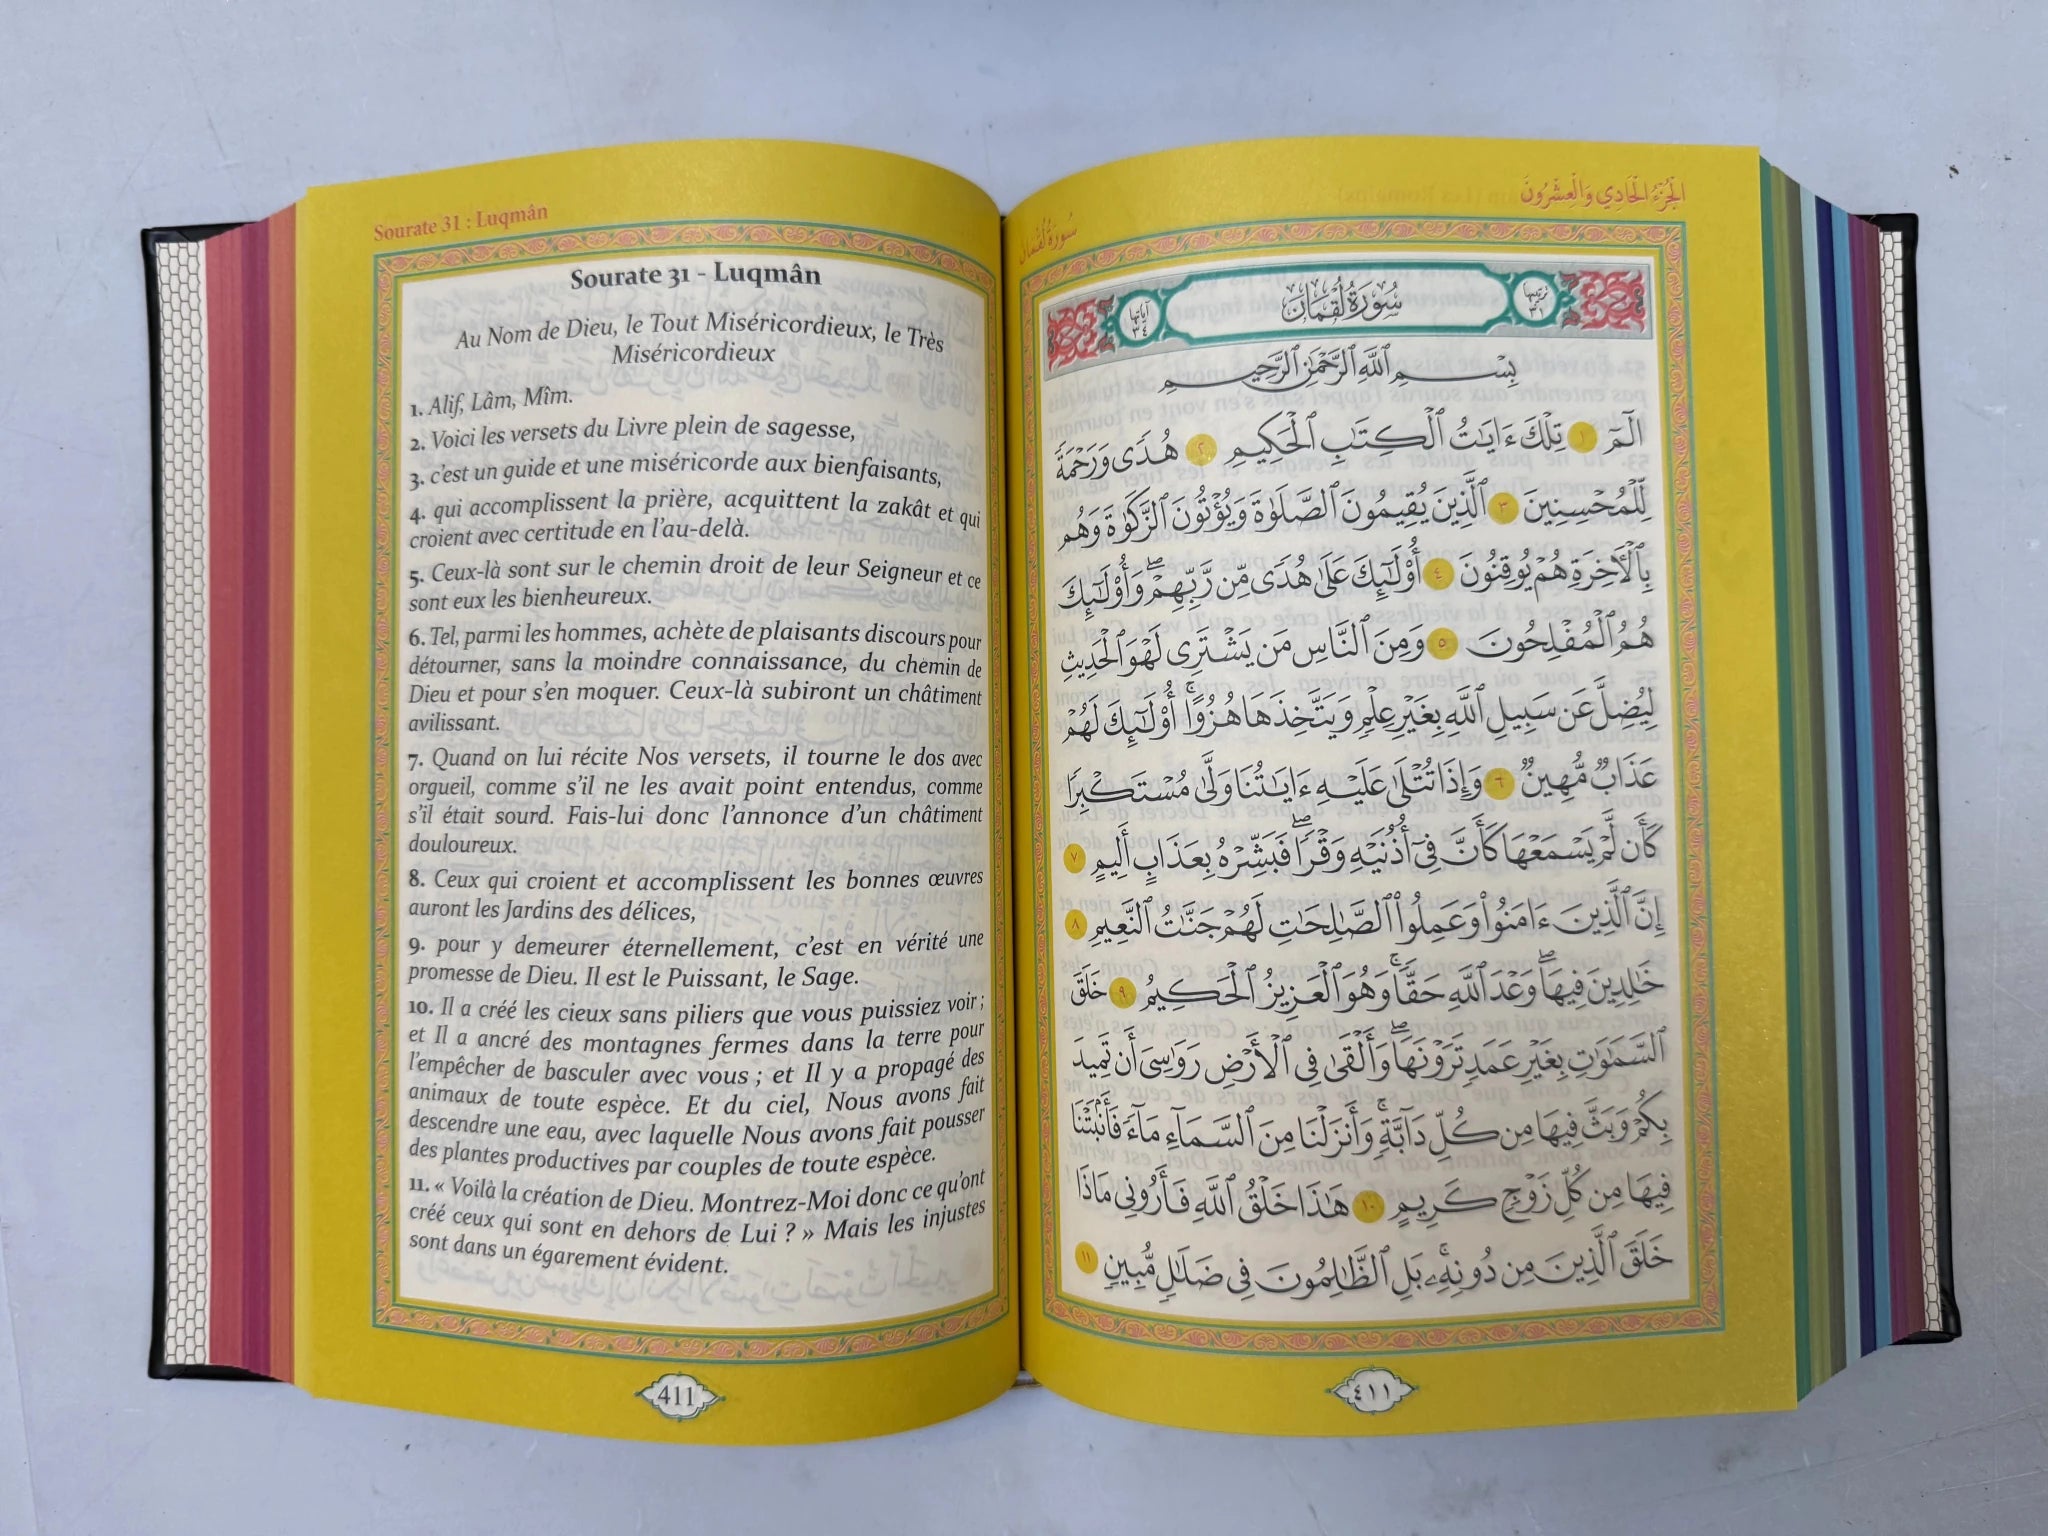 Sourate 31 : Luqmân
Sourate 31 - Luqmân
Au Nom de Dieu, le Tout Miséricordieux, le Très
Miséricordieux
1. Alif, Lâm, Mîm.
2. Voici les versets du Livre plein de sagesse,
3. c'est un guide et une miséricorde aux bienfaisants,
4. qui accomplissent la prière, acquittent la zakât et qui
croient avec certitude en l'au-delà.
5. Ceux-là sont sur le chemin droit de leur Seigneur et ce
sont eux les bienheureux.
6. Tel, parmi les hommes, achète de plaisants discours pour
détourner, sans la moindre connaissance, du chemin de
Dieu et pour s'en moquer. Ceux-là subiront un châtiment
avilissant.
7. Quand on lui récite Nos versets, il tourne le dos avec
orgueil, comme s'il ne les avait point entendus, comme
s'il était sourd. Fais-lui donc l'annonce d'un châtiment
douloureux.
8. Ceux qui croient et accomplissent les bonnes œuvres
auront les Jardins des délices,
9. pour y demeurer éternellement, c'est en vérité une
promesse de Dieu. Il est le Puissant, le Sage.
10. Il a créé les cieux sans piliers que vous puissiez voir ;
et Il a ancré des montagnes fermes dans la terre pour
l'empêcher de basculer avec vous ; et Il y a propagé des
animaux de toute espèce. Et du ciel, Nous avons fait
descendre une eau, avec laquelle Nous avons fait pousser
des plantes productives par couples de toute espèce.
11. « Voilà la création de Dieu. Montrez-Moi donc ce qu'ont
créé ceux qui sont en dehors de Lui ? » Mais les injustes
sont dans un égarement évident.
411
الجُزْءُ الْحَادِي وَالْعِشْرُونَ
سُورَةُ لُقْمَان
ترتيبها ٣١
سُورَةُ لُقْمَانَ
آياتها ٣٤
بِسْمِ ٱللَّهِ ٱلرَّحْمَٰنِ ٱلرَّحِيمِ
الٓمٓ ١ تِلْكَ ءَايَٰتُ ٱلْكِتَٰبِ ٱلْحَكِيمِ ٢ هُدًى وَرَحْمَةً
لِّلْمُحْسِنِينَ ٣ ٱلَّذِينَ يُقِيمُونَ ٱلصَّلَوٰةَ وَيُؤْتُونَ ٱلزَّكَوٰةَ وَهُم
بِٱلْءَاخِرَةِ هُمْ يُوقِنُونَ ٤ أُو۟لَٰٓئِكَ عَلَىٰ هُدًى مِّن رَّبِّهِمْ ۖ وَأُو۟لَٰٓئِكَ
هُمُ ٱلْمُفْلِحُونَ ٥ وَمِنَ ٱلنَّاسِ مَن يَشْتَرِى لَهْوَ ٱلْحَدِيثِ
لِيُضِلَّ عَن سَبِيلِ ٱللَّهِ بِغَيْرِ عِلْمٍ وَيَتَّخِذَهَا هُزُوًا ۚ أُو۟لَٰٓئِكَ لَهُمْ
عَذَابٌ مُّهِينٌ ٦ وَإِذَا تُتْلَىٰ عَلَيْهِ ءَايَٰتُنَا وَلَّىٰ مُسْتَكْبِرًا
كَأَن لَّمْ يَسْمَعْهَا كَأَنَّ فِىٓ أُذُنَيْهِ وَقْرًا ۖ فَبَشِّرْهُ بِعَذَابٍ أَلِيمٍ ٧
إِنَّ ٱلَّذِينَ ءَامَنُوا۟ وَعَمِلُوا۟ ٱلصَّٰلِحَٰتِ لَهُمْ جَنَّٰتُ ٱلنَّعِيمِ ٨
خَٰلِدِينَ فِيهَا ۖ وَعْدَ ٱللَّهِ حَقًّا ۚ وَهُوَ ٱلْعَزِيزُ ٱلْحَكِيمُ ٩ خَلَقَ
ٱلسَّمَٰوَٰتِ بِغَيْرِ عَمَدٍ تَرَوْنَهَا ۖ وَأَلْقَىٰ فِى ٱلْأَرْضِ رَوَٰسِىَ أَن تَمِيدَ
بِكُمْ وَبَثَّ فِيهَا مِن كُلِّ دَآبَّةٍ ۚ وَأَنزَلْنَا مِنَ ٱلسَّمَآءِ مَآءً فَأَنۢبَتْنَا
فِيهَا مِن كُلِّ زَوْجٍ كَرِيمٍ ١٠ هَٰذَا خَلْقُ ٱللَّهِ فَأَرُونِى مَاذَا
خَلَقَ ٱلَّذِينَ مِن دُونِهِۦ ۚ بَلِ ٱلظَّٰلِمُونَ فِى ضَلَٰلٍ مُّبِينٍ ١١
٤١١